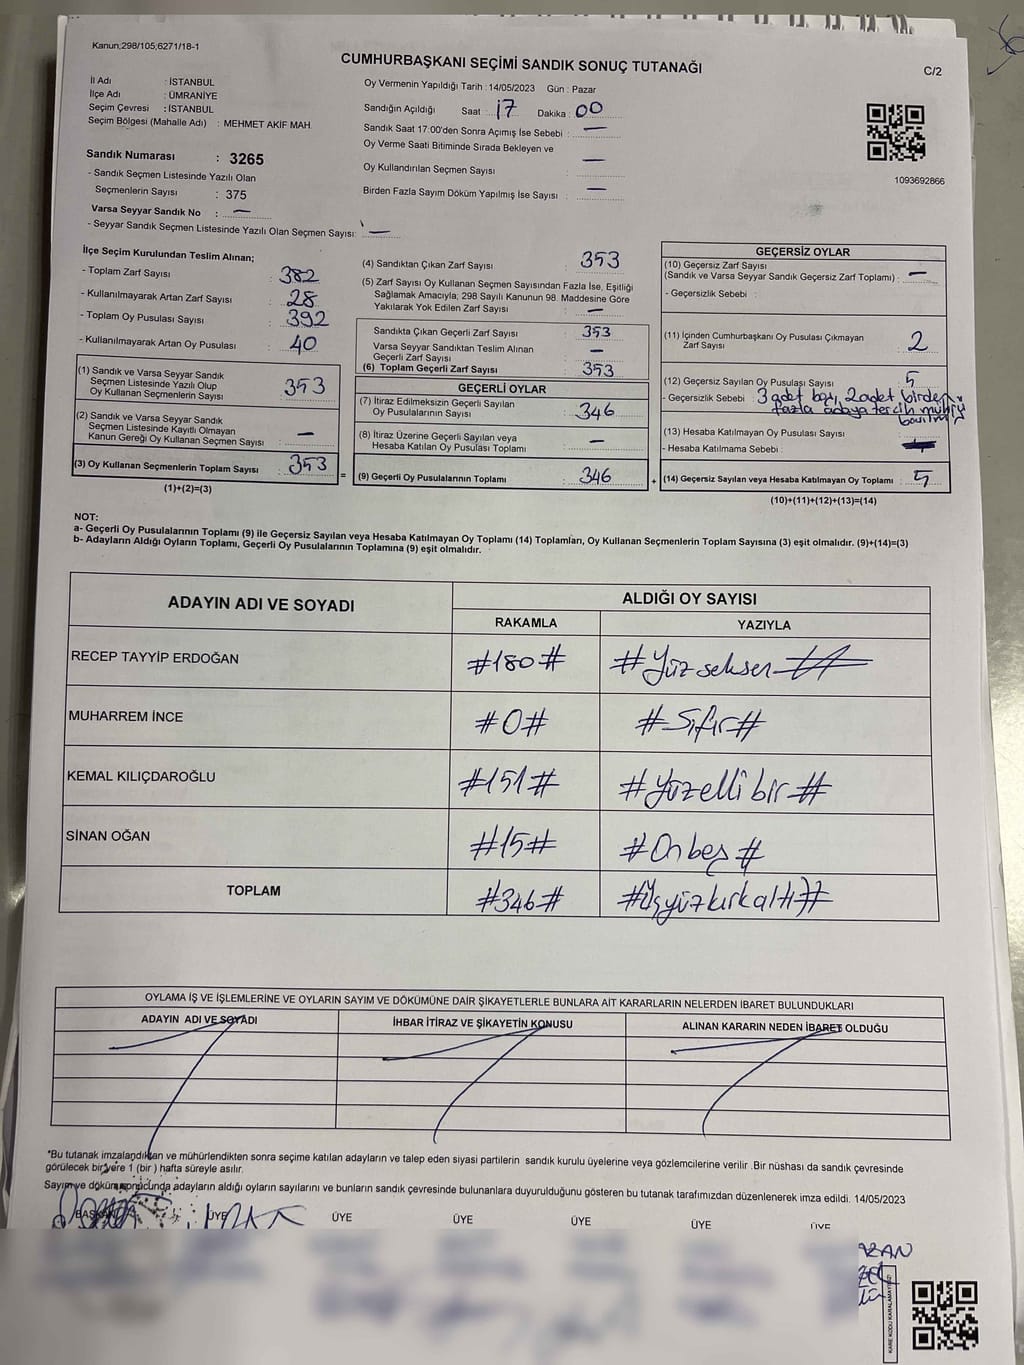 Kanun;298/105;6271/18-1
CUMHURBAŞKANI SEÇİMİ SANDIK SONUÇ TUTANAĞI
C/2
İl Adı : İSTANBUL
İlçe Adı : ÜMRANİYE
Seçim Çevresi : İSTANBUL
Seçim Bölgesi (Mahalle Adı) : MEHMET AKİF MAH.
Oy Vermenin Yapıldığı Tarih : 14/05/2023 Gün : Pazar
Sandığın Açıldığı Saat : 17 Dakika : 00
Sandık Saat 17:00'den Sonra Açımış İse Sebebi : —
Oy Verme Saati Bitiminde Sırada Bekleyen ve
Oy Kullandırılan Seçmen Sayısı : —
Birden Fazla Sayım Döküm Yapılmış İse Sayısı : —
1093692866
Sandık Numarası : 3265
- Sandık Seçmen Listesinde Yazılı Olan
Seçmenlerin Sayısı : 375
Varsa Seyyar Sandık No : —
- Seyyar Sandık Seçmen Listesinde Yazılı Olan Seçmen Sayısı: —
İlçe Seçim Kurulundan Teslim Alınan;
- Toplam Zarf Sayısı : 382
- Kullanılmayarak Artan Zarf Sayısı : 28
- Toplam Oy Pusulası Sayısı : 392
- Kullanılmayarak Artan Oy Pusulası : 40
(1) Sandık ve Varsa Seyyar Sandık
Seçmen Listesinde Yazılı Olup
Oy Kullanan Seçmenlerin Sayısı : 353
(2) Sandık ve Varsa Seyyar Sandık
Seçmen Listesinde Kayıtlı Olmayan
Kanun Gereği Oy Kullanan Seçmen Sayısı : —
(3) Oy Kullanan Seçmenlerin Toplam Sayısı : 353
(1)+(2)=(3)
(4) Sandıktan Çıkan Zarf Sayısı : 353
(5) Zarf Sayısı Oy Kullanan Seçmen Sayısından Fazla İse, Eşitliği
Sağlamak Amacıyla; 298 Sayılı Kanunun 98. Maddesine Göre
Yakılarak Yok Edilen Zarf Sayısı : —
Sandıkta Çıkan Geçerli Zarf Sayısı : 353
Varsa Seyyar Sandıktan Teslim Alınan
Geçerli Zarf Sayısı : —
(6) Toplam Geçerli Zarf Sayısı : 353
GEÇERLİ OYLAR
(7) İtiraz Edilmeksizin Geçerli Sayılan
Oy Pusulalarının Sayısı : 346
(8) İtiraz Üzerine Geçerli Sayılan veya
Hesaba Katılan Oy Pusulası Toplamı : —
= (9) Geçerli Oy Pusulalarının Toplamı : 346
GEÇERSİZ OYLAR
(10) Geçersiz Zarf Sayısı
(Sandık ve Varsa Seyyar Sandık Geçersiz Zarf Toplamı) : —
- Geçersizlik Sebebi :
(11) İçinden Cumhurbaşkanı Oy Pusulası Çıkmayan
Zarf Sayısı : 2
(12) Geçersiz Sayılan Oy Pusulası Sayısı : 5
- Geçersizlik Sebebi : 3 adet boş, 2 adet birden
fazla adaya tercih mührü
(13) Hesaba Katılmayan Oy Pusulası Sayısı :
- Hesaba Katılmama Sebebi :
+ (14) Geçersiz Sayılan veya Hesaba Katılmayan Oy Toplamı : 5
(10)+(11)+(12)+(13)=(14)
NOT:
a- Geçerli Oy Pusulalarının Toplamı (9) ile Geçersiz Sayılan veya Hesaba Katılmayan Oy Toplamı (14) Toplamları, Oy Kullanan Seçmenlerin Toplam Sayısına (3) eşit olmalıdır. (9)+(14)=(3)
b- Adayların Aldığı Oyların Toplamı, Geçerli Oy Pusulalarının Toplamına (9) eşit olmalıdır.
ADAYIN ADI VE SOYADI
ALDIĞI OY SAYISI
RAKAMLA YAZIYLA
RECEP TAYYİP ERDOĞAN #180# #Yüz seksen#
MUHARREM İNCE #0# #Sıfır#
KEMAL KILIÇDAROĞLU #151# #Yüzelli bir#
SİNAN OĞAN #15# #Onbeş#
TOPLAM #346# #Üçyüzkırkaltı#
OYLAMA İŞ VE İŞLEMLERİNE VE OYLARIN SAYIM VE DÖKÜMÜNE DAİR ŞİKAYETLERLE BUNLARA AİT KARARLARIN NELERDEN İBARET BULUNDUKLARI
ADAYIN ADI VE SOYADI İHBAR İTİRAZ VE ŞİKAYETİN KONUSU ALINAN KARARIN NEDEN İBARET OLDUĞU
*Bu tutanak imzalandıktan ve mühürlendikten sonra seçime katılan adayların ve talep eden siyasi partilerin sandık kurulu üyelerine veya gözlemcilerine verilir .Bir nüshası da sandık çevresinde
görülecek bir yere 1 (bir ) hafta süreyle asılır.
Sayım ve döküm sonucunda adayların aldığı oyların sayılarını ve bunların sandık çevresinde bulunanlara duyurulduğunu gösteren bu tutanak tarafımızdan düzenlenerek imza edildi. 14/05/2023
BAŞKAN ÜYE ÜYE ÜYE ÜYE ÜYE ÜYE
KARE KODU KARALAMAYINIZ!